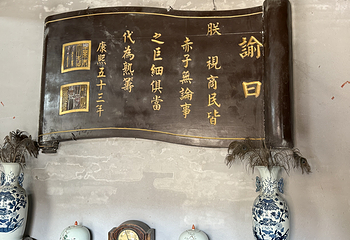 諭曰
朕視商民皆
赤子無論事
之巨細俱當
代為熟籌
康熙五十二年